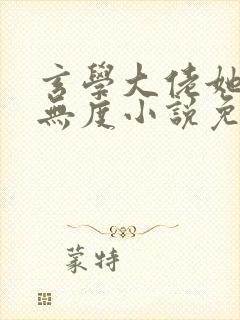 玄學大佬她
無度小說免
蒙特